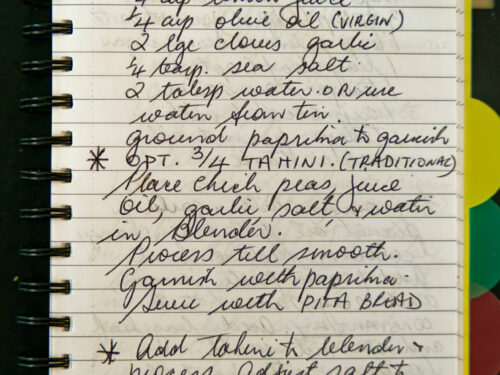 1/4 cup lemon juice
1/4 cup olive oil (VIRGIN)
2 lge cloves garlic
1/4 teasp. sea salt.
2 tablsp water. OR use
water from tin.
ground paprika to garnish
* OPT. 3/4 TAHINI. (TRADITIONAL)
Place chick peas, juice
oil, garlic, salt, + water
in Blender.
Process till smooth.
Garnish with paprika.
Serve with PITA BREAD
* Add tahini to blender +
process adjust salt to